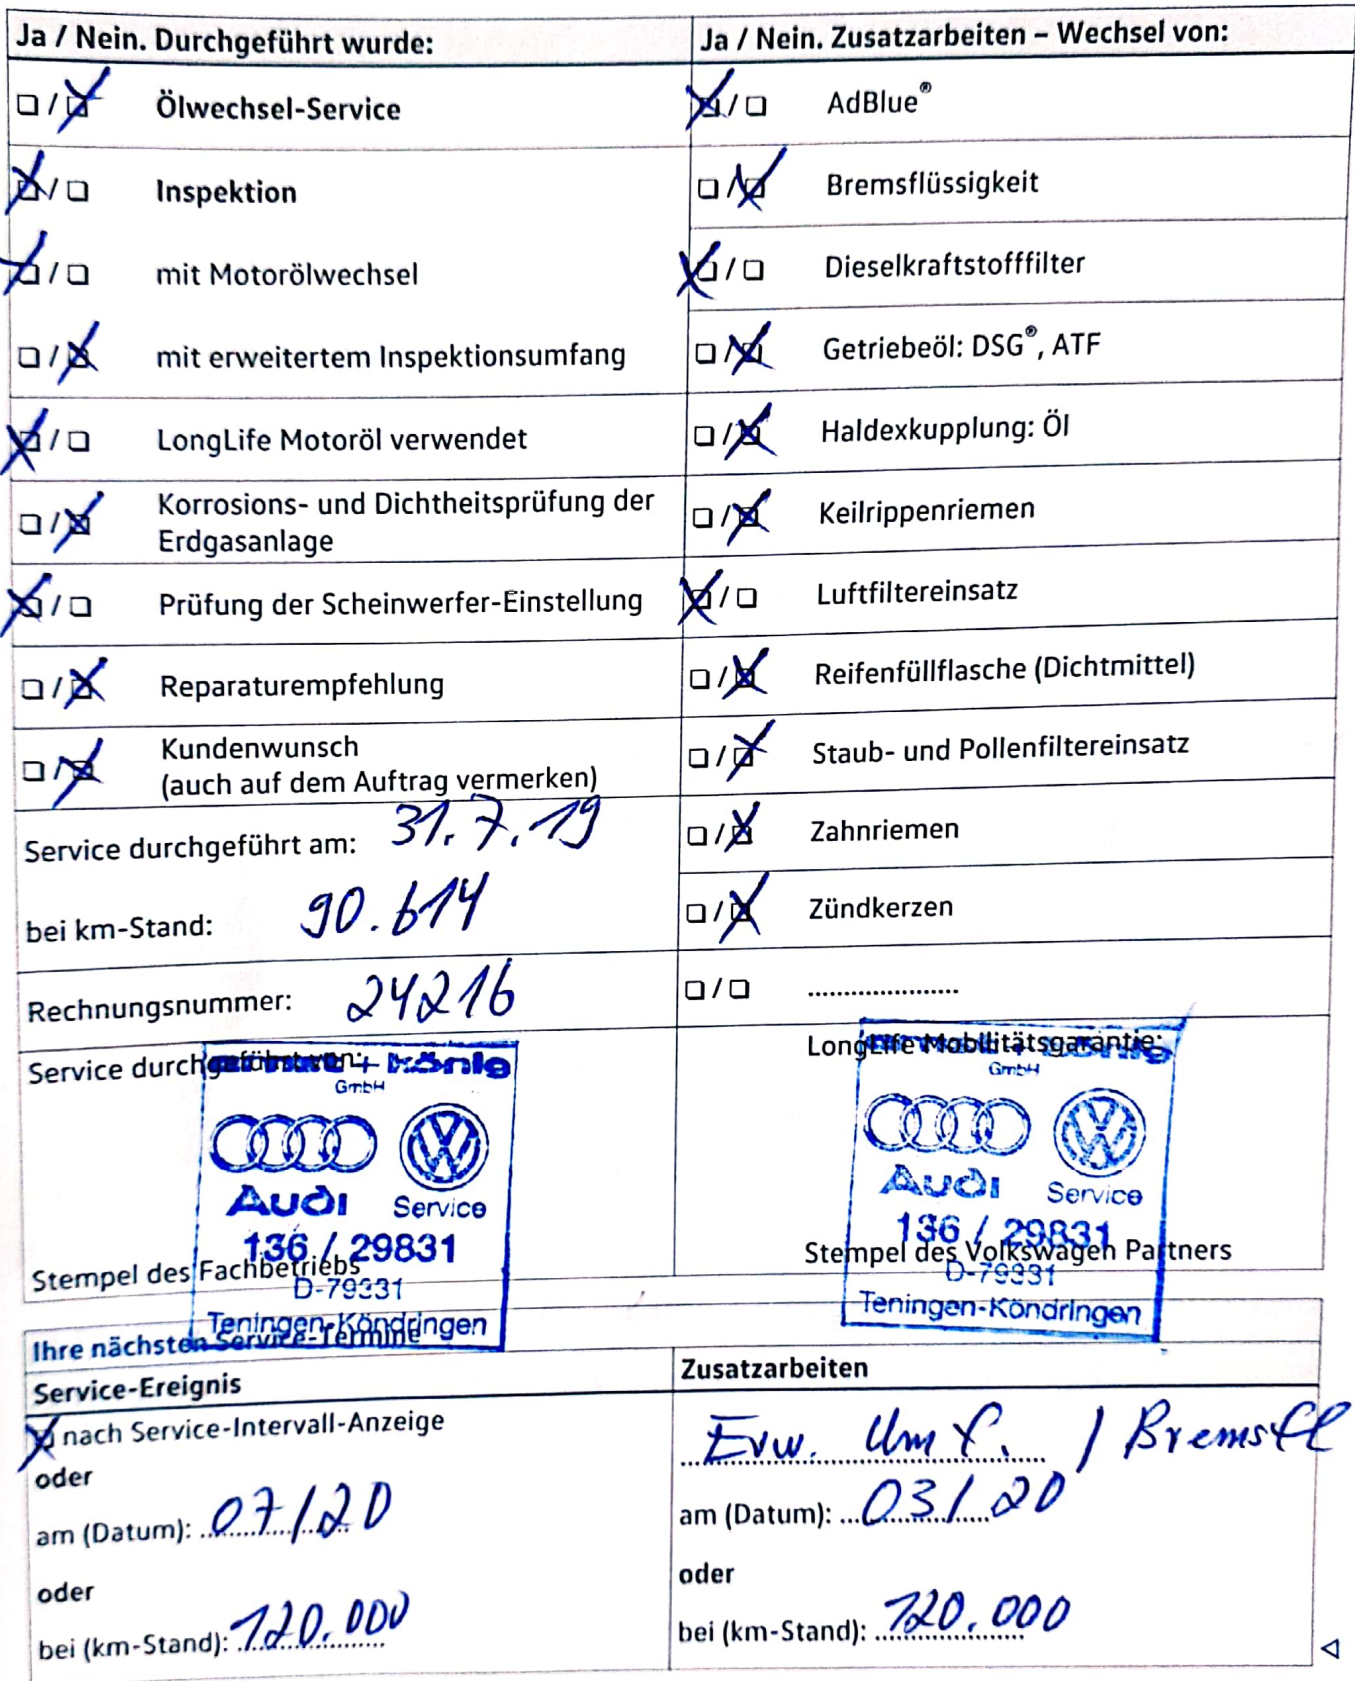 Ja / Nein. Durchgeführt wurde:
Ölwechsel-Service
Inspektion
mit Motorölwechsel
mit erweitertem Inspektionsumfang
LongLife Motoröl verwendet
Korrosions- und Dichtheitsprüfung der
Erdgasanlage
Prüfung der Scheinwerfer-Einstellung
Reparaturempfehlung
Kundenwunsch
(auch auf dem Auftrag vermerken)
Service durchgeführt am: 31.7.19
bei km-Stand: 90.614
Rechnungsnummer: 24216
Service durchgeführt von:
+ König
GmbH
Audi Service
136 / 29831
D-79331
Teningen-Köndringen
Stempel des Fachbetriebs
Ja / Nein. Zusatzarbeiten – Wechsel von:
AdBlue®
Bremsflüssigkeit
Dieselkraftstofffilter
Getriebeöl: DSG®, ATF
Haldexkupplung: Öl
Keilrippenriemen
Luftfiltereinsatz
Reifenfüllflasche (Dichtmittel)
Staub- und Pollenfiltereinsatz
Zahnriemen
Zündkerzen
LongLife Mobilitätsgarantie:
GmbH
Audi Service
136 / 29831
D-79331
Teningen-Köndringen
Stempel des Volkswagen Partners
Ihre nächsten Service-Termine
Service-Ereignis
nach Service-Intervall-Anzeige
oder
am (Datum): 07/20
oder
bei (km-Stand): 120.000
Zusatzarbeiten
Erw. Umf. / Bremsfl
am (Datum): 03/20
oder
bei (km-Stand): 120.000